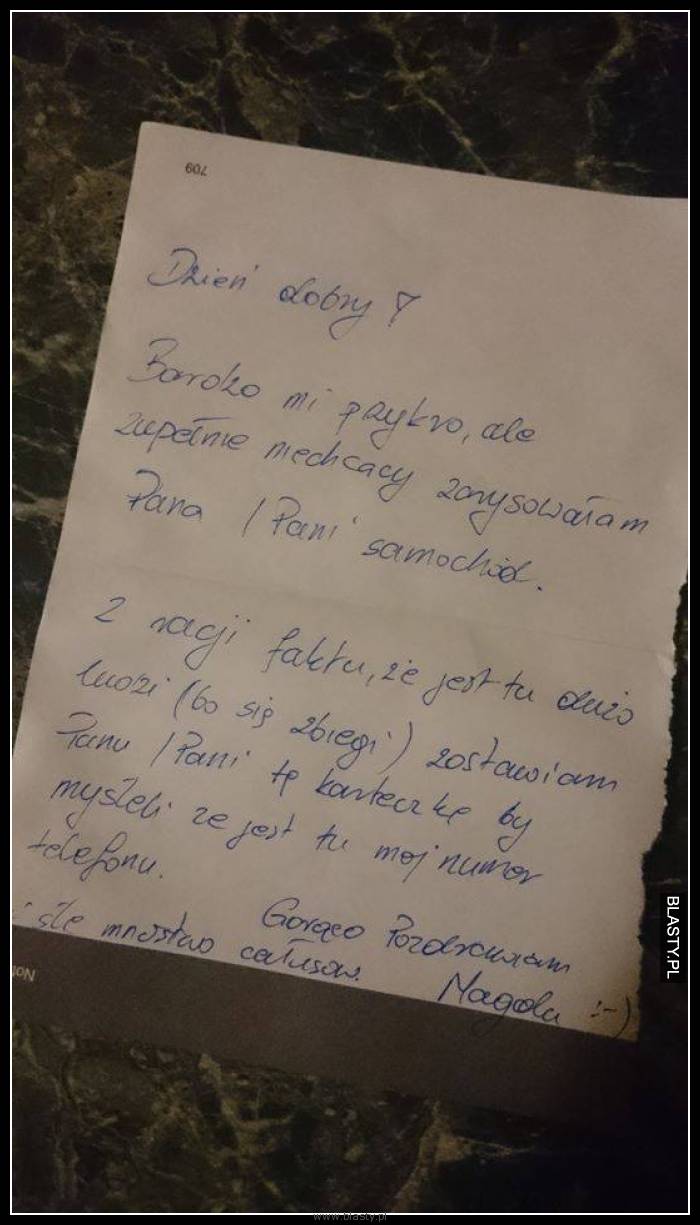 709
Dzień dobry!
Bardzo mi przykro, ale
zupełnie niechcący zarysowałam
Pana / Pani samochód.
Z racji faktu, że jest tu dużo
ludzi (bo się zbiegi) zostawiam
Panu / Pani tę karteczkę by
myśleli ze jest tu moj numer
telefonu.
Gorąco Pozdrawiam
i śle mnóstwo całusów. Magda :-)
Not
BLASTY.PL
www.blasty.pl